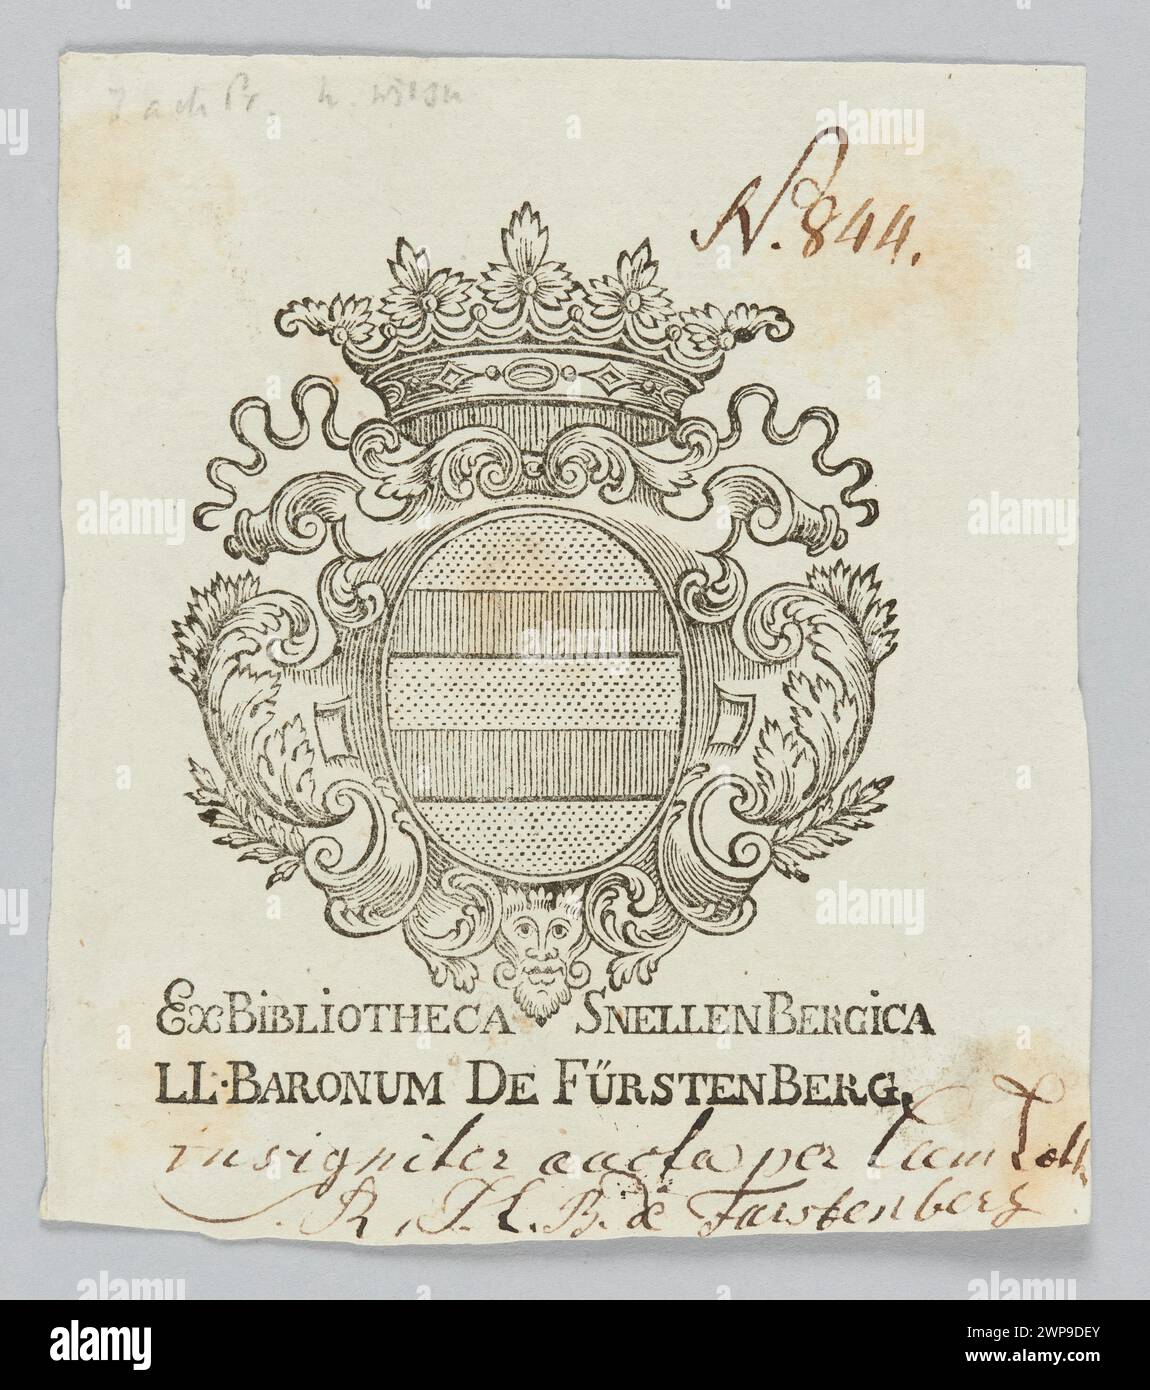 N. 844.
Ex BiBLiOTHECA SNELLENBERGiCA
LL. BARONUM DE FŰRSTENBERG.
insigniter aucta per
R. I. L. B. de Furstenberg
alamy
Image ID: 2WP9DEY
www.alamy.com